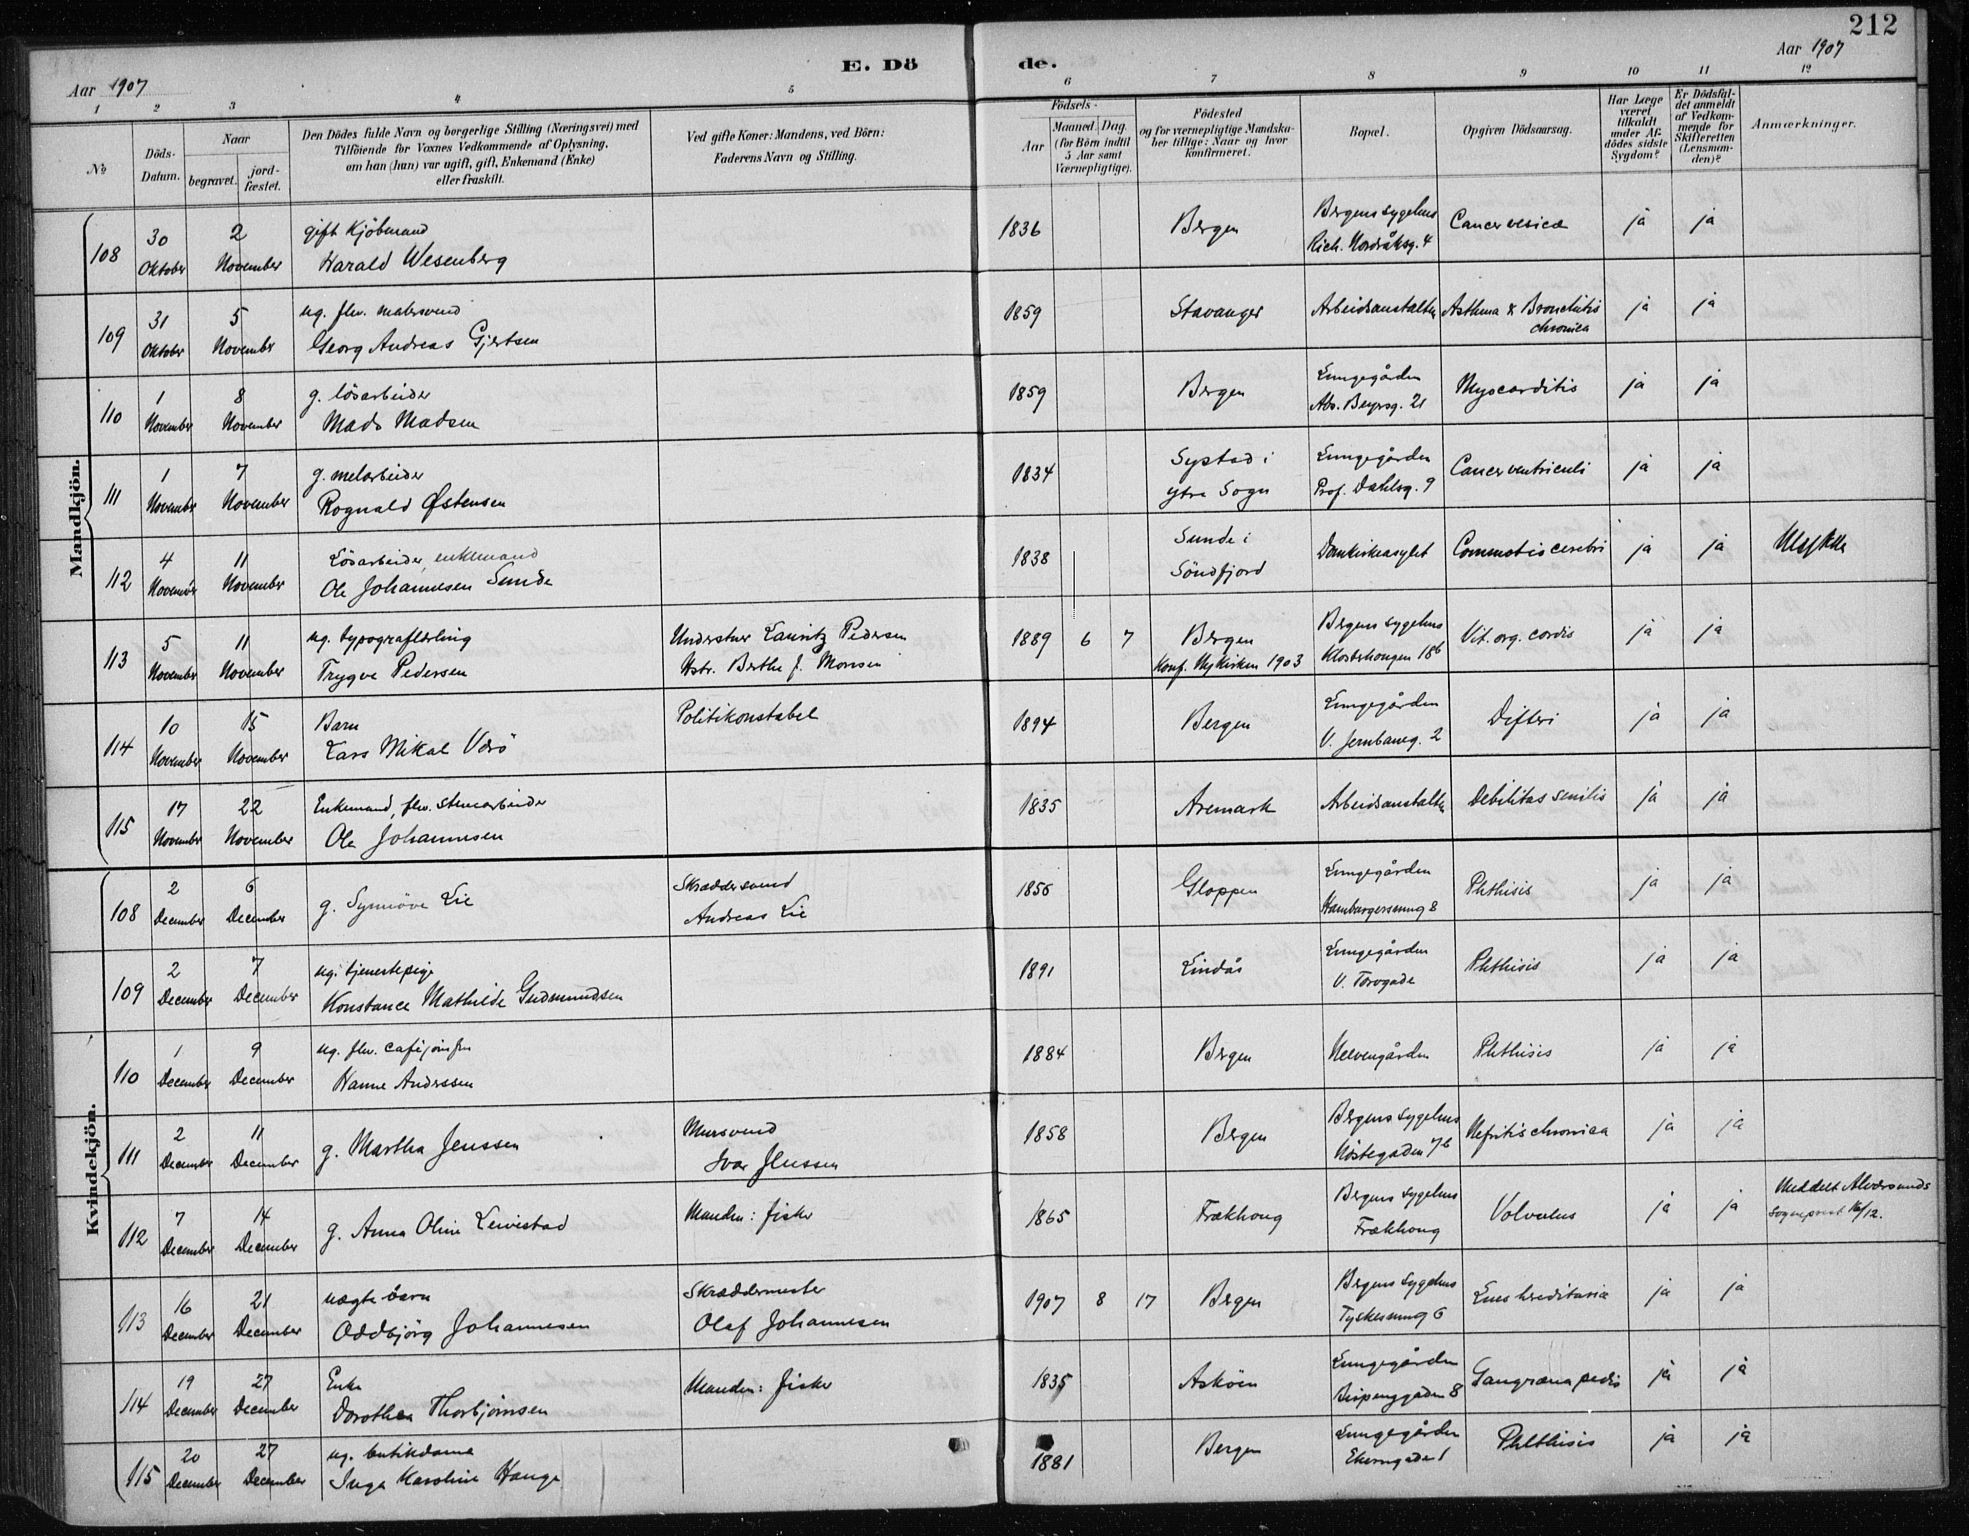 212
E. Dö de.
Aar 1907
Aar 1907
1 2 3 4 5 6 7 8 9 10 11 12
No
Döds-Datum.
Naar
begravet.
jord-fæstet.
Den Dödes fulde Navn og borgerlige Stilling (Næringsvei) med
Tilföiende for Voxnes Vedkommende af Oplysning,
om han (hun) var ugift, gift, Enkemand (Enke)
eller fraskilt.
Ved gifte Koner: Mandens, ved Börn:
Faderens Navn og Stilling.
Födsels-
Aar
Maaned. Dag.
(for Börn indtil
5 Aar samt
Værnepligtige).
Födested
og for værnepligtige Mandska-
ber tillige: Naar og hvor
konfirmeret.
Bopæl.
Opgiven Dödsaarsag.
Har Læge
været
tilkaldt
under Af-
dödes sidste
Sygdom?
Er Dödsfal-
det anmeldt
af Vedkom-
mende for
Skifteretten
(Lensman-
den)?
Anmærkninger.
Mandkjön.
108 30 Oktober 2 November gift Kjöbmand
Harald Wesenberg
1836 Bergen Bergens sygehus
Rich. Nordråksg. 4 Cancer vesicæ ja ja
109 31 Oktober 5 November ug. fhv. malersvend
Georg Andreas Gjertsen
1859 Stavanger Arbeidsanstalten Asthma & Bronchitis
chronica ja ja
110 1 November 8 November g. lösarbeider
Mads Madsen
1859 Bergen Lungegården
Abs. Beyersg. 21 Myocarditis ja ja
111 1 November 7 November g. melarbeider
Rognald Østensen
1834 Systad i
ytre Sogn Lungegården
Prof. Dahlsg. 9 Cancer ventriculi ja ja
112 4 November 11 November Lösarbeider, enkemand
Ole Johannesen Sunde
1838 Sunde i
Söndfjord Domkirkeasylet Commotis cerebri ja ja
113 5 November 11 November ug. typograflærling
Trygve Pedersen
Lauritz Pedersen
Hstr. Berthe f. Monsen
1889 6 7 Bergen
Konf. Nykirken 1903 Bergens sygehus
Klosterhaugen 18b Vit. org. cordis ja ja
114 10 November 15 November Barn
Lars Mikal Värö
Politikonstabel
1894 Bergen Lungegården
V. Jernbaneg. 2 Difteri ja ja
115 17 November 22 November Enkemand, fhv. stenarbeider
Ole Johannesen
1835 Aremark Arbeidsanstalten Debilitas senilis ja ja
Kvindekjön.
108 2 December 6 December g. Synnöve Lie
Skræddersvend
Andreas Lie
1856 Gloppen Lungegården
Hamburgersmug 8 Phthisis ja ja
109 2 December 7 December ug. tjenestepige
Konstance Mathilde Gudmundsen
1891 Lindås Lungegården
V. Torvgade Phthisis ja ja
110 1 December 9 December ug. fhv. cafejomfru
Hanne Anderssen
1884 Bergen Helvengården Phthisis ja ja
111 2 December 11 December g. Martha Jenssen
Mursvend
Ivar Jenssen
1858 Bergen Bergens sygehus
Nöstegaden 76 Nefritis chronica ja ja
112 7 December 14 December g. Anna Oline Leivestad
Manden: fisker
1865 Frækhaug Bergens sygehus
Frækhaug Volvulus ja ja Meddelt Alversunds
Sogneprest 16/12.
113 16 December 21 December uægte barn
Oddbjörg Johannesen
Skræddermester
Olaf Johannesen
1907 8 17 Bergen Bergens sygehus
Tyskesmug 6 Lues hereditaria ja ja
114 19 December 27 December Enke
Dorothea Thorbjörnsen
Manden: fisker
1835 Asköen Lungegården
Bispenggaden 8 Gangræna pedis ja ja
115 20 December 27 December ug. butikdame
Inga Karoline Hauge
1881 Bergen Lungegården
Ekerngaden 1 Phthisis ja ja